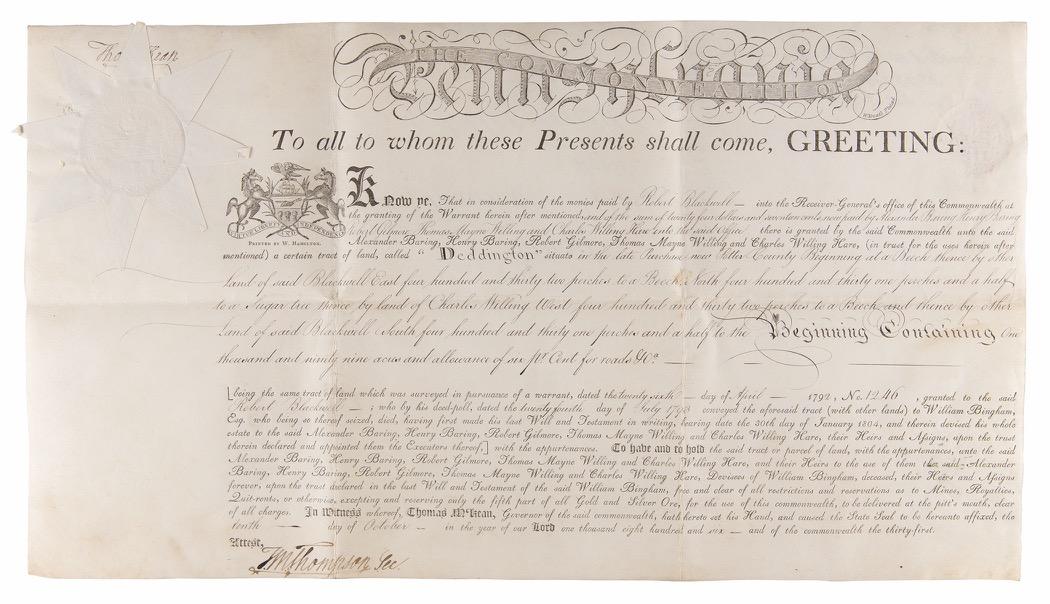 Tho
Kean
THE COMMONWEALTH OF
Pennsylvania
To all to whom these Presents shall come, GREETING:
PRINTED BY W. HAMILTON.
Know ye, That in consideration of the monies paid by Robert Blackwell — into the Receiver-General's office of this Commonwealth at
the granting of the Warrant herein after mentioned, and of the sum of twenty four dollars and seventeen cents now paid by Alexander Baring Henry Baring
Robert Gilmore Thomas Mayne Willing and Charles Willing Hare into the said Office there is granted by the said Commonwealth unto the said
Alexander Baring, Henry Baring, Robert Gilmore, Thomas Mayne Willing and Charles Willing Hare, (in trust for the uses herein after
mentioned) a certain tract of land, called "Deddington" situate in the late Purchase now Potter County Beginning at a Beech thence by other
land of said Blackwell East four hundred and thirty two perches to a Beech North four hundred and thirty one perches and a half
to a Sugar tree thence by land of Charles Willing West four hundred and thirty two perches to a Beech and thence by other
Land of said Blackwell South four hundred and thirty one perches and a half to the Beginning Containing One
thousand and ninety nine acres and allowance of six pr. Cent for roads &c.
[being the same tract of land which was surveyed in pursuance of a warrant, dated the twenty sixth — day of April — 1792, No. 1246 , granted to the said
Robert Blackwell — ; who by his deed-poll, dated the twenty fourth day of July 1793 conveyed the aforesaid tract (with other lands) to William Bingham,
Esq. who being so thereof seized, died, having first made his last Will and Testament in writing, bearing date the 30th day of January 1804, and therein devised his whole
estate to the said Alexander Baring, Henry Baring, Robert Gilmore, Thomas Mayne Willing and Charles Willing Hare, their Heirs and Assigns, upon the trust
therein declared and appointed them the Executors thereof,] with the appurtenances. To have and to hold the said tract or parcel of land, with the appurtenances, unto the said
Alexander Baring, Henry Baring, Robert Gilmore, Thomas Mayne Willing and Charles Willing Hare, and their Heirs to the use of them the said Alexander
Baring, Henry Baring, Robert Gilmore, Thomas Mayne Willing and Charles Willing Hare, Devisees of William Bingham, deceased, their Heirs and Assigns
forever, upon the trust declared in the last Will and Testament of the said William Bingham, free and clear of all restrictions and reservations as to Mines, Royalties,
Quit-rents, or otherwise, excepting and reserving only the fifth part of all Gold and Silver Ore, for the use of this commonwealth, to be delivered at the pitt's mouth, clear
of all charges. In Witness whereof, Thomas M'Kean, Governor of the said commonwealth, hath hereto set his Hand, and caused the State Seal to be hereunto affixed, the
tenth — day of October — in the year of our Lord one thousand eight hundred and six — and of the commonwealth the thirty-first.
Attest,
TMThompson Sec.